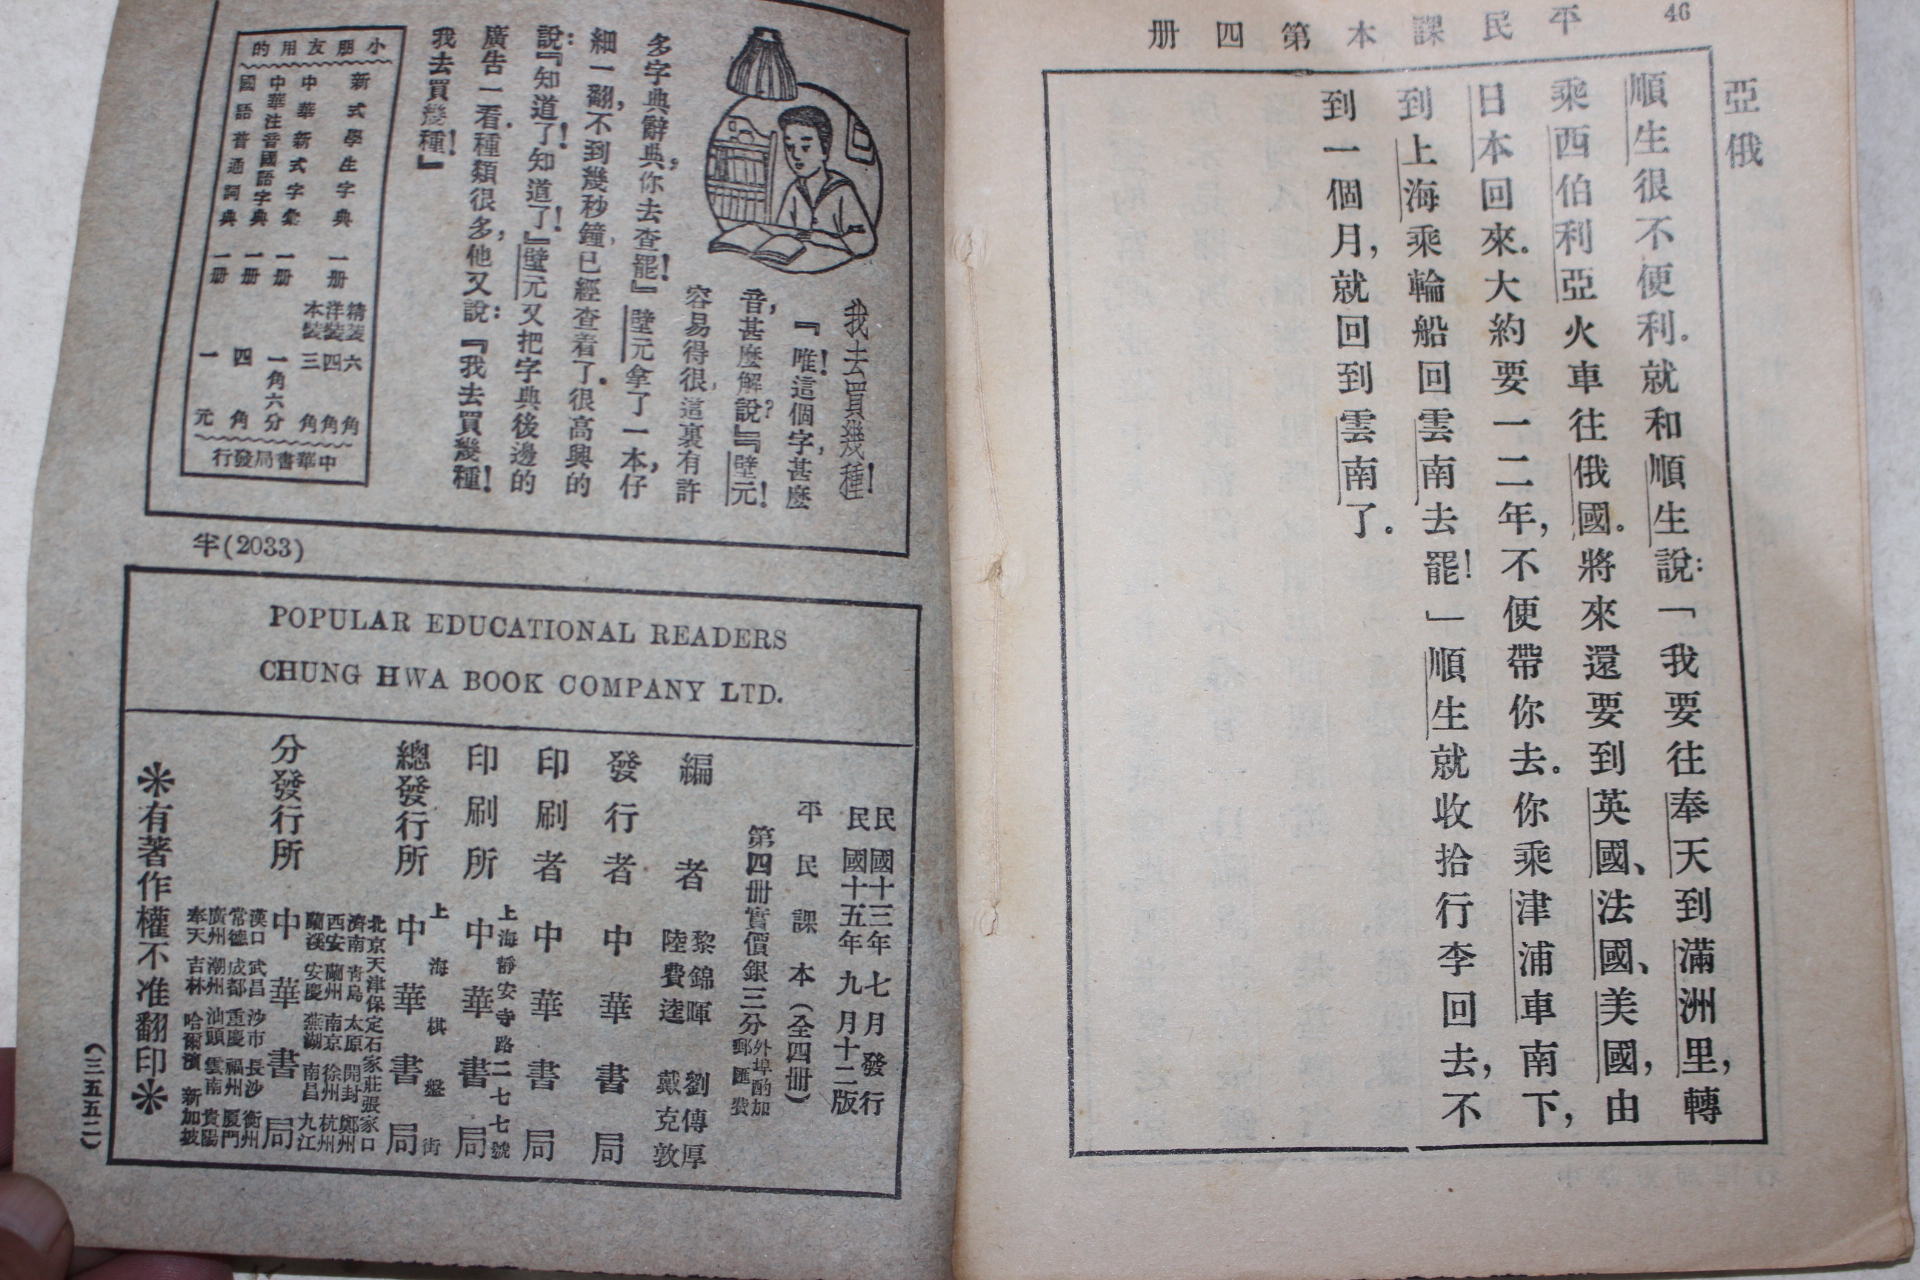 46
平民課本第四册
亞俄
順生很不便利。就和順生說：「我要往奉天到滿洲里，轉
乘西伯利亞火車往俄國。將來還要到英國、法國、美國，由
日本回來。大約要一二年，不便帶你去。你乘津浦車南下，
到上海乘輪船回雲南去罷！」順生就收拾行李回去，不
到一個月，就回到雲南了。
我去買幾種！
『唯！這個字，甚麼
音，甚麼解說？』『璧元！
容易得很，這裏有許
多字典辭典，你去查罷！』璧元拿了一本，仔
細一翻，不到幾秒鐘，已經查着了。很高興的
說：『知道了！知道了！』璧元又把字典後邊的
廣告一看，種類很多，他又說：『我去買幾種！
我去買幾種！』
小朋友用的
新式學生字典 一册 精裝 六角 洋裝 四角
中華新式字彙 一册 本裝 三角
中華注音國語字典 一册 一角六分
國語普通詞典 一册 四角
一册 一元
中華書局發行
半(2033)
POPULAR EDUCATIONAL READERS
CHUNG HWA BOOK COMPANY LTD.
民國十三年七月發行
民國十五年九月十二版
平民課本（全四册）
第四册實價銀三分 外埠酌加郵匯費
編者 黎錦暉 劉傳厚 陸費逵 戴克敦
發行者 中華書局
印刷者 中華書局
上海靜安寺路二七七號
印刷所 中華書局
上海棋盤街
總發行所 中華書局
北京 天津 保定 石家莊 張家口
濟南 青島 太原 開封 鄭州
西安 蘭州 南京 徐州 杭州
蘭溪 安慶 蕪湖 南昌 九江
分發行所 中華書局
漢口 武昌 沙市 長沙 衡州
常德 成都 重慶 福州 厦門
廣州 潮州 汕頭 雲南 貴陽
奉天 吉林 哈爾濱 新加坡
有著作權不准翻印
（三五五二）